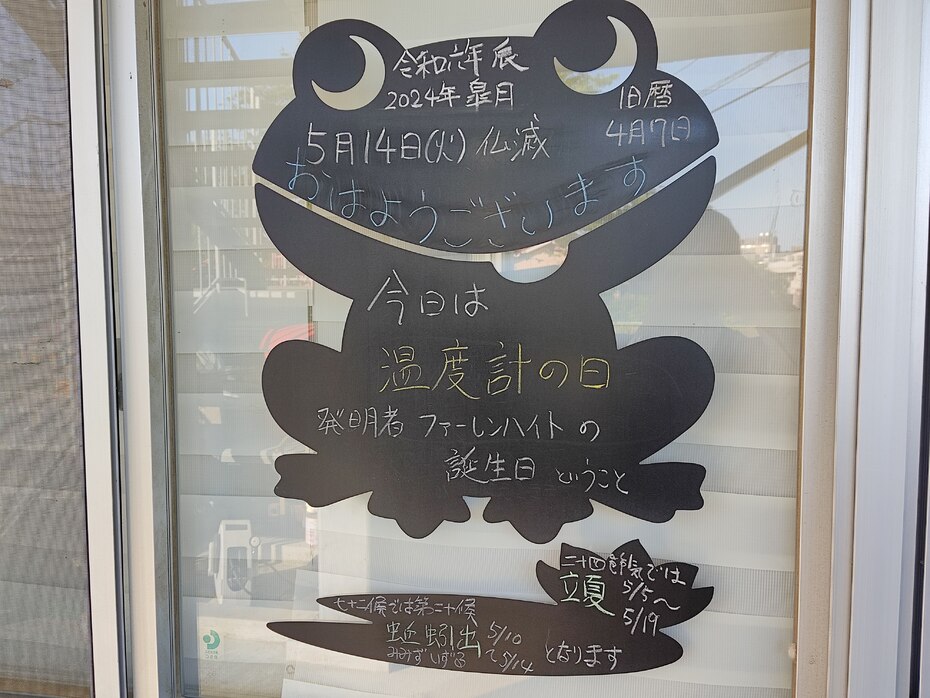 令和六年辰
2024年皐月
旧暦
4月7日
5月14日(火)仏滅
おはようございます
今日は
温度計の日
発明者 ファーレンハイトの
誕生日 ということ
二十四節気では
立夏 5/5〜
5/19
七十二候では第二十候
蚯蚓出 5/10
みみずいずる 〜5/14
となります